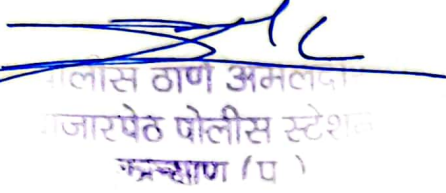 पोलीस ठाणे अमलदार
बाजारपेठ पोलीस स्टेशन
कल्याण (प)